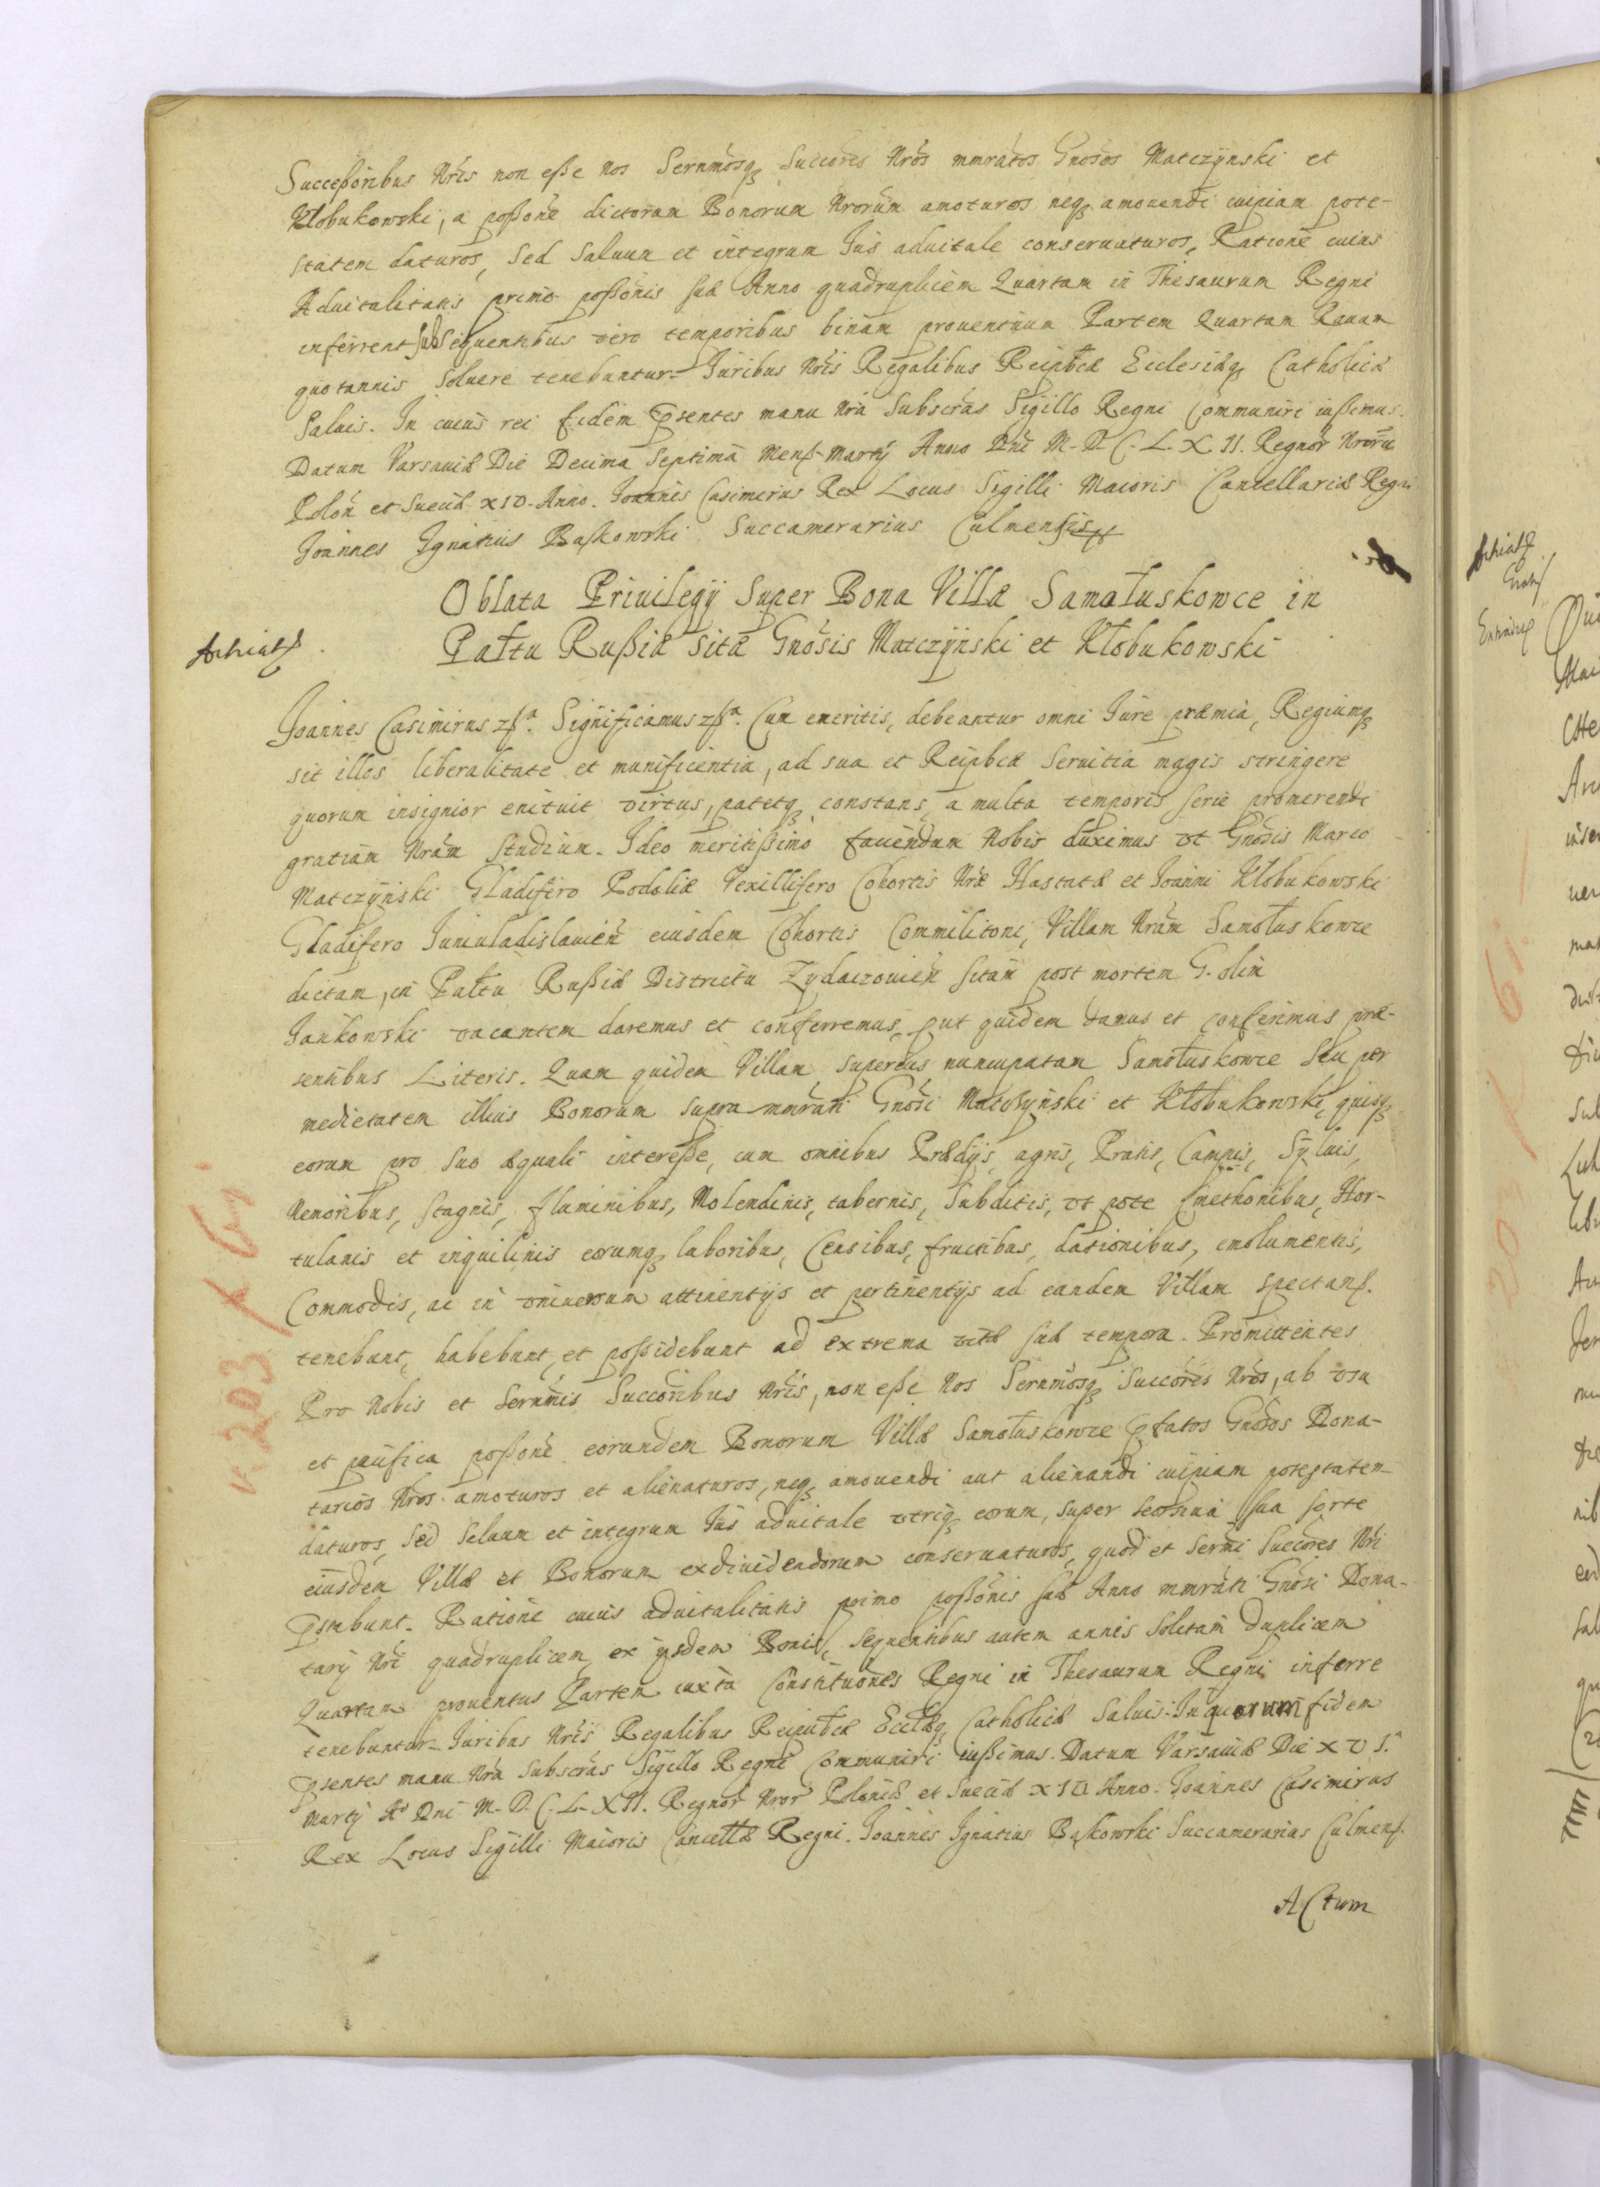 Successoribus Nris non esse nos Sernmosq Succores Nros mmratos Gnosos Matczÿnski et
Kłobukowski, a possone dictorum Bonorum Nrorum amoturos neq amouendi cuipiam pote-
statem daturos, sed saluum et integrum Jus aduitale conseruaturos, Ratione cuius
Aduitalitatis primo possonis suæ Anno quadruplicem Quartam in Thesaurum Regni
inferrent subsequentibus vero temporibus binam prouentuum Partem Quartam Rauam
quotannis soluere tenebuntur. Juribus Nris Regalibus Reipbcæ Ecclesiæq Catholicæ
Saluis. In cuius rei fidem Psentes manu Nra Subscras Sigillo Regni Communiri iussimus.
Datum Varsauiæ Die Decima Septima Mens. Martÿ Anno Dni M. D. C. L. X II. Regnor Nroru
Polon et Sueciæ XIV. Anno. Joannes Casimirus Rex Locus Sigilli Maioris Cancellariæ Regni
Joannes Ignatius Bąkowski Succamerarius Culmensis
Oblata Priuilegÿ Super Bona Villæ Samołuskowce in
Pałtu Russiæ sitæ Gnosis Matczÿnski et Kłobukowski
Joannes Casimirus Significamus Cum emeritis, debeantur omni Jure præmia, Regiumq
sit illos liberalitate et munificentia, ad sua et Reipbcæ Seruitia magis stringere
quorum insignior enituit virtus, patetq constans, a multa temporis serie promerendi
gratiam Nram Studium. Ideo meritissimo fauendum Nobis duximus vt Gnosis Marco
Matczÿnski Gladifero Podoliæ Vexillifero Cohortis Nræ Hastatæ et Joanni Kłobukowski
Gladifero Juniuladislauien eiusdem Cohortis Commilitoni, Villam Nram Samołuskowce
dictam, in Pałtu Russiæ Districtu Zydaczouien sitam post mortem G. olim
Jankowski vacantem daremus et conferremus, put quidem damus et conferimus præ-
sentibus Literis. Quam quidem Villam superius nuncupatam Samołuskowce seu per
medietatem illius Bonorum supra mmrati Gnosi Matczÿnski et Kłobukowski, quisq
eorum pro suo æquali interesse, cum omnibus Prædÿs, agris, Pratis, Campis, Sÿluis,
Nemoribus, stagnis, fluminibus, Molendinis, tabernis, Subditis, vt pote Cmethonibus, Hor-
tulanis et inquilinis eorumq laboribus, Censibus, fructibus, dationibus, emolumentis,
Commodis, ac in vniuersum attinentÿs et pertinentÿs ad eandem Villam spectans.
tenebunt, habebunt, et possidebunt ad extrema vitæ suæ tempora. Promittentes
Pro Nobis et Sernmis Succoribus Nris, non esse Nos Sernmosq Succores Nros, ab vsu
et pacifica possone eorundem Bonorum Villæ Samołuskowce Pfatos Gnosos Dona-
tarios Nros amoturos et alienaturos, neq amouendi aut alienandi cuipiam potestatem
daturos, Sed Saluum et integrum Jus aduitale vtriq eorum, super seorsiua sua sorte
eiusdem Villæ et Bonorum exdiuidendorum conseruaturos, quod et Sernmi Succores Nri
Pstabunt. Ratione cuius aduitalitatis primo possonis suæ Anno mmrati Gnosi Dona-
tarÿ Nri quadruplicem, ex ÿsdem Bonis, sequentibus autem annis solitam duplicem
Quartam prouentus Partem iuxta Constituones Regni in Thesaurum Regni inferre
tenebuntur. Juribus Nris Regalibus Reipubcæ Ecclæq Catholicæ Saluis. In quorum fidem
Psentes manu Nra Subscras Sigillo Regni Communiri iussimus. Datum Varsauiæ Die X V S.
Martÿ Ao Dni M. D. C. L. X II. Regnor Nror Poloniæ et Sueciæ XIV Anno. Joannes Casimirus
Rex Locus Sigilli Maioris Cancełłæ Regni. Joannes Ignatius Bąkowski Succamerarius Culmens.
ACtum